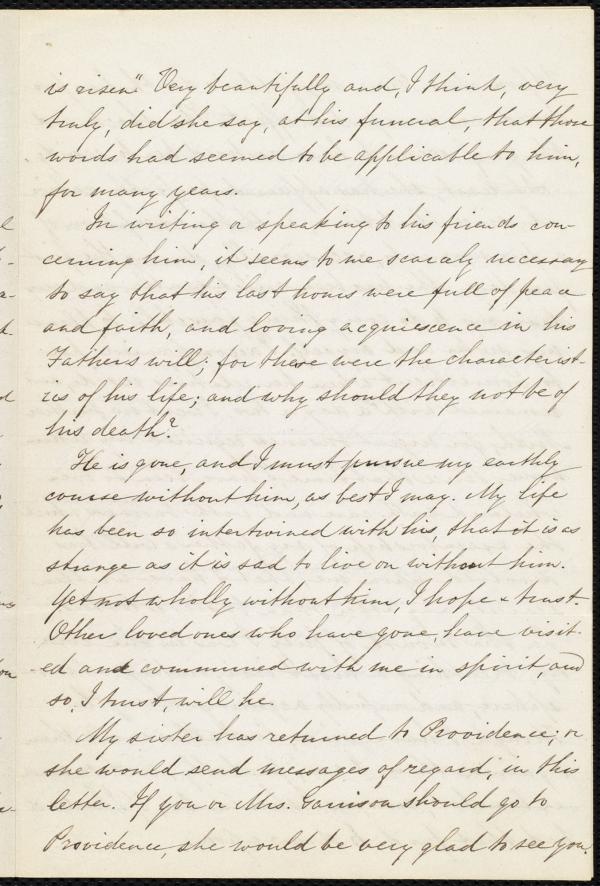 is risen." Very beautifully and, I think, very
truly, did she say, at his funeral, that those
words had seemed to be applicable to him,
for many years.
In writing or speaking to his friends con-
cerning him, it seems to me scarcely necessary
to say that his last hours were full of peace
and faith, and loving acquiescence in his
Father's will; for these were the characterist-
ics of his life; and why should they not be of
his death?
He is gone, and I must pursue my earthly
course without him, as best I may. My life
has been so intertwined with his, that it is as
strange as it is sad to live on without him.
Yet not wholly without him, I hope & trust.
Other loved ones who have gone, have visit-
ed and communed with me in spirit, and
so, I trust, will he.
My sister has returned to Providence; or
she would send messages of regard, in this
letter. If you or Mrs. Garrison should go to
Providence, she would be very glad to see you.